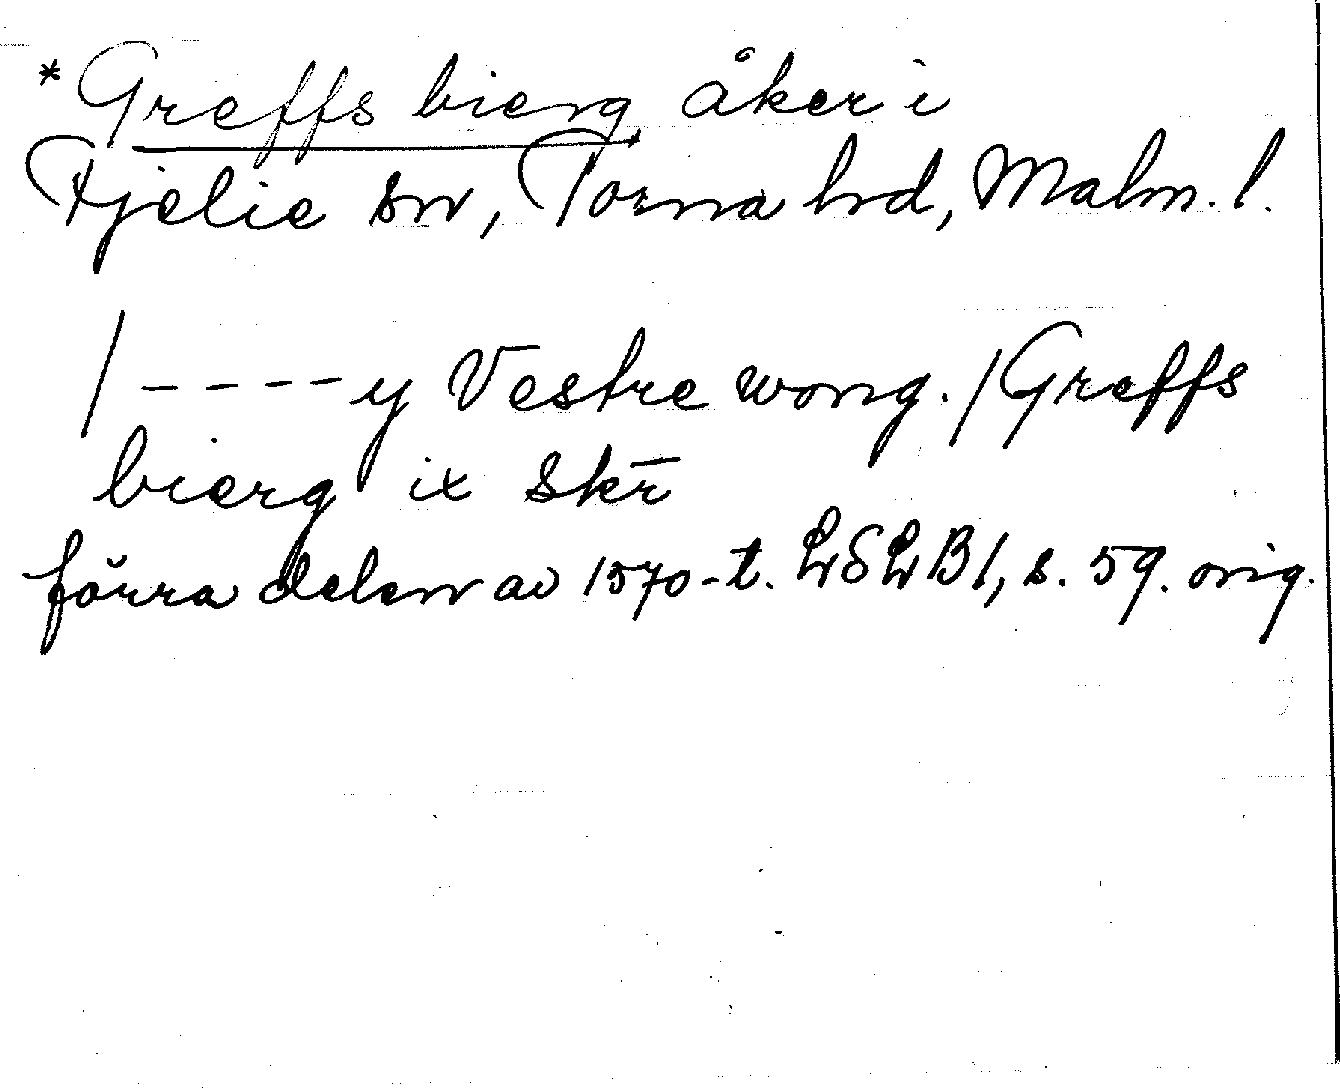 *Greffs bierg åker i
Fjelie sn, Torna hd, Malm. l.
/ - - - - y Vestre wong. / Greffs
bierg ix skr̄
förra delen av 1570-t. LSLB I, s. 59. orig.